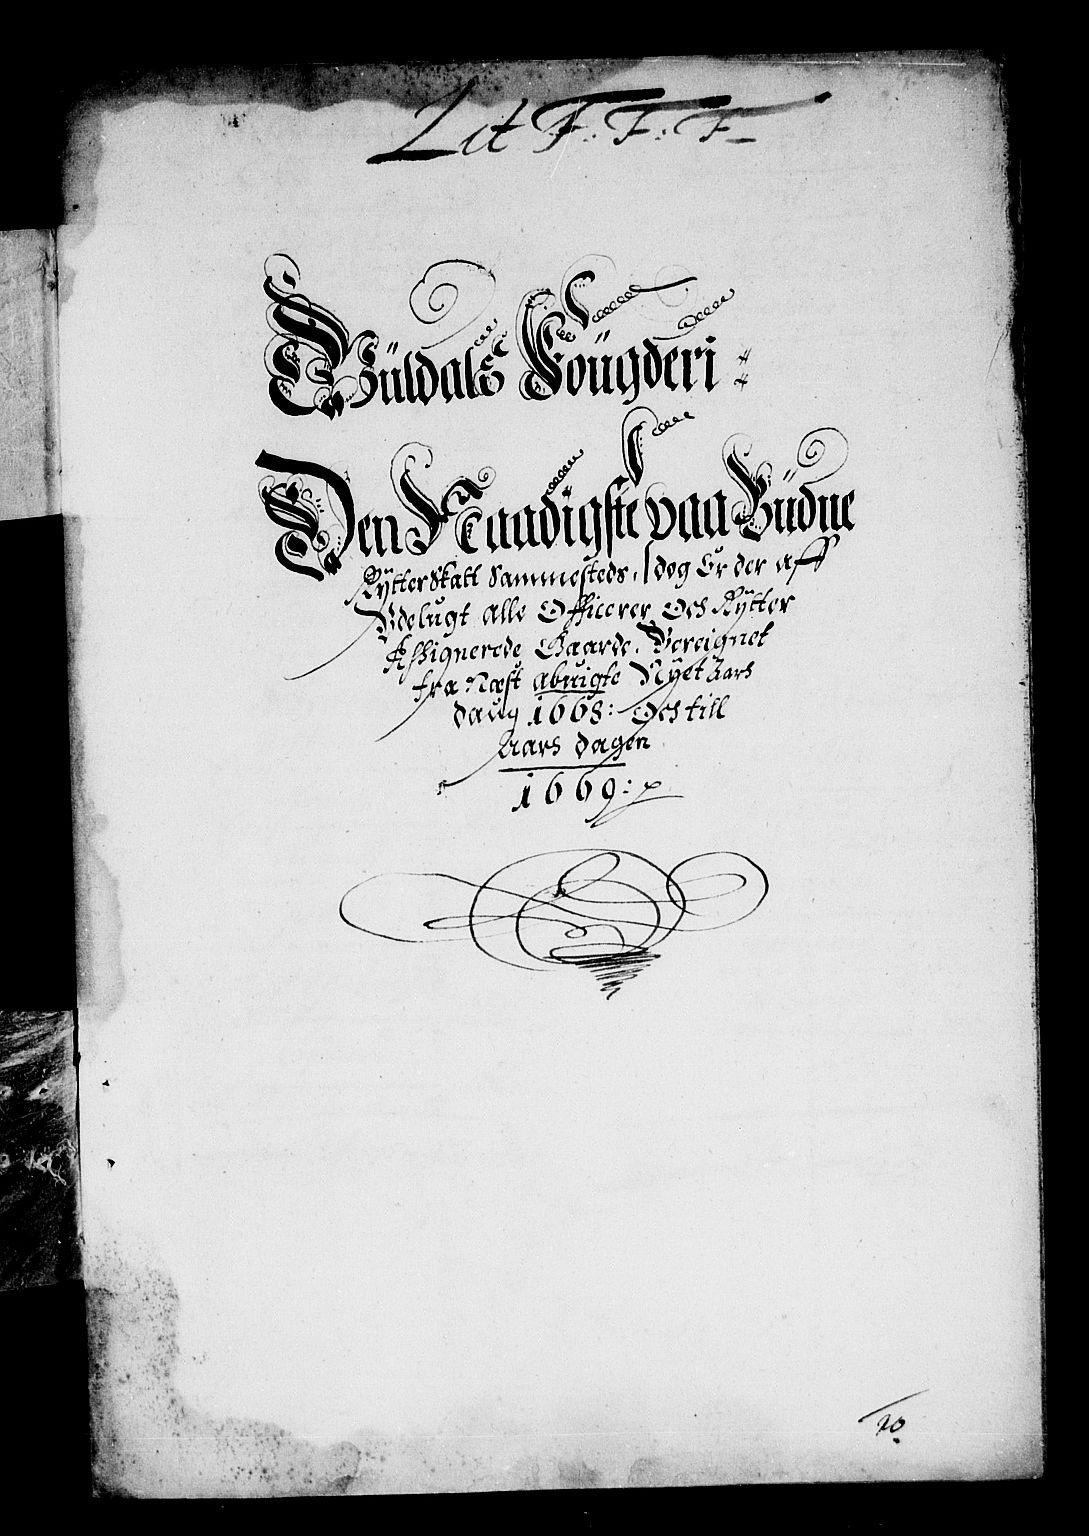 Lit F. F: F
Güldals Foügderi :
Den Naadigste paa Büdne
Rÿtterskatt Sammesteds, dog Er der aff
Vdelugt alle Officerer Och Rÿtter
Assignerede Gaarde. Bereignet
fra Næst abuigte Nÿet Aars
daug 1668: Och till
Aars dagen
1669: p
20.